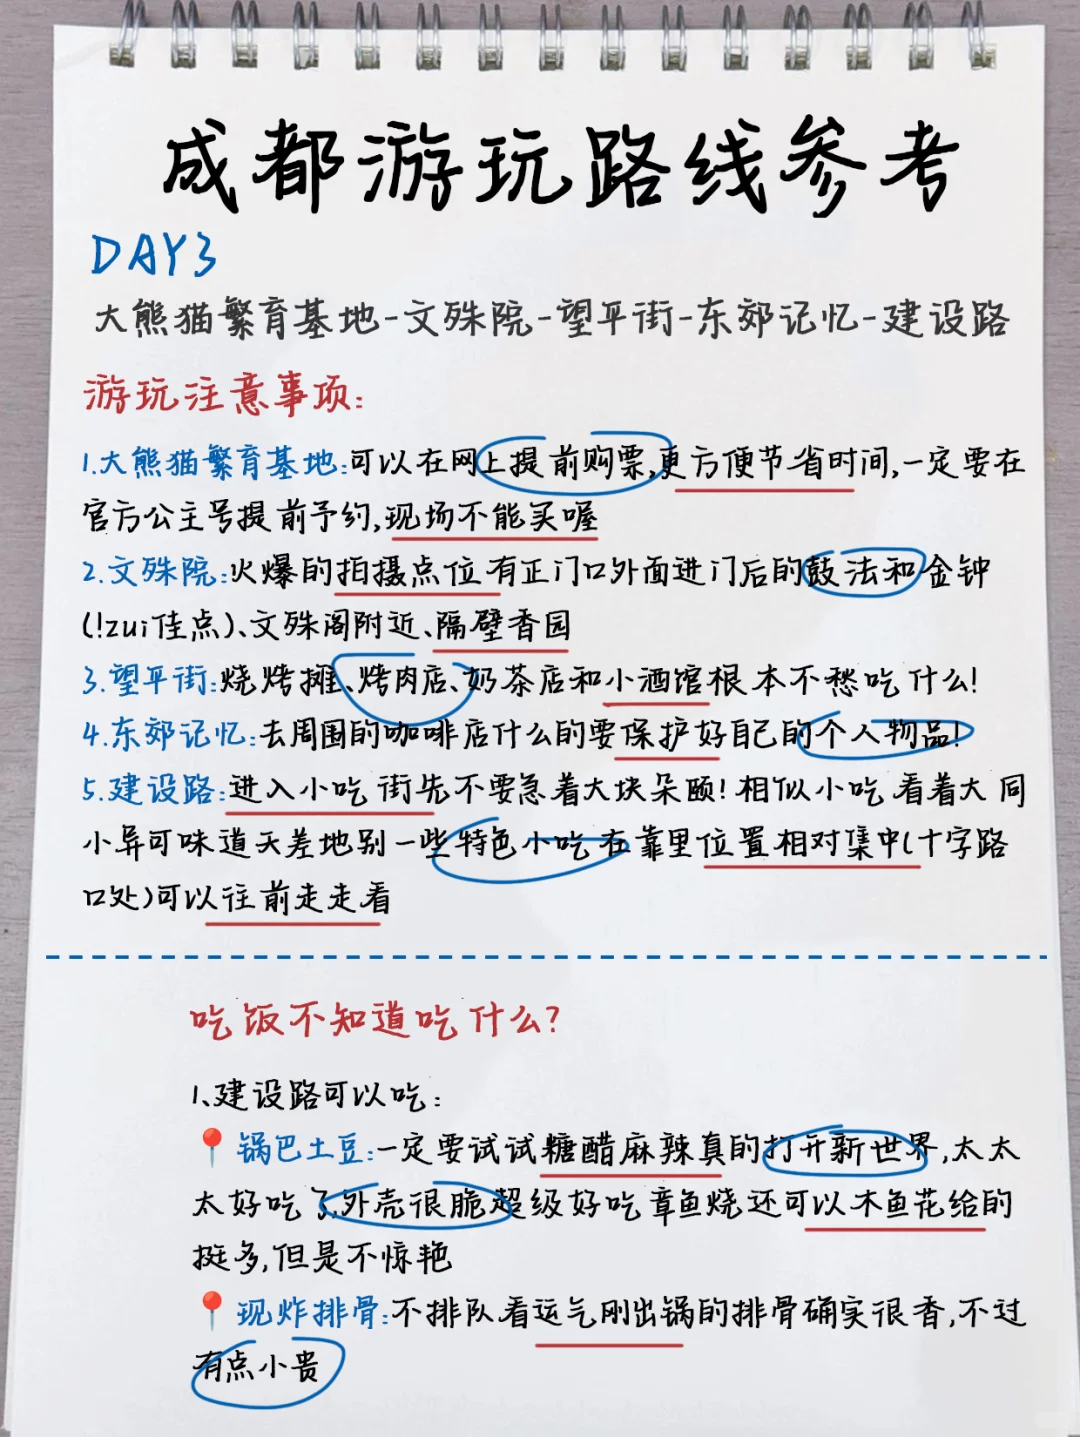 成都游玩路线参考
DAY3
大熊猫繁育基地-文殊院-望平街-东郊记忆-建设路
游玩注意事项:
1.大熊猫繁育基地:可以在网上提前购票,更方便节省时间,一定要在
官方公主号提前予约,现场不能买喔
2.文殊院:火爆的拍摄点位有正门口外面进门后的鼓法和金钟
(!zui佳点)、文殊阁附近、隔壁香园
3.望平街:烧烤摊、烤肉店、奶茶店和小酒馆根本不愁吃什么!
4.东郊记忆:去周围的咖啡店什么的要保护好自己的个人物品!
5.建设路:进入小吃街先不要急着大块朵颐!相似小吃看着大同
小异可味道天差地别一些特色小吃在靠里位置相对集中(十字路
口处)可以往前走走看
吃饭不知道吃什么?
1、建设路可以吃:
📍锅巴土豆:一定要试试糖醋麻辣真的打开新世界,太太
太好吃了,外壳很脆超级好吃章鱼烧还可以木鱼花给的
挺多,但是不惊艳
📍现炸排骨:不排队看运气刚出锅的排骨确实很香,不过
有点小贵